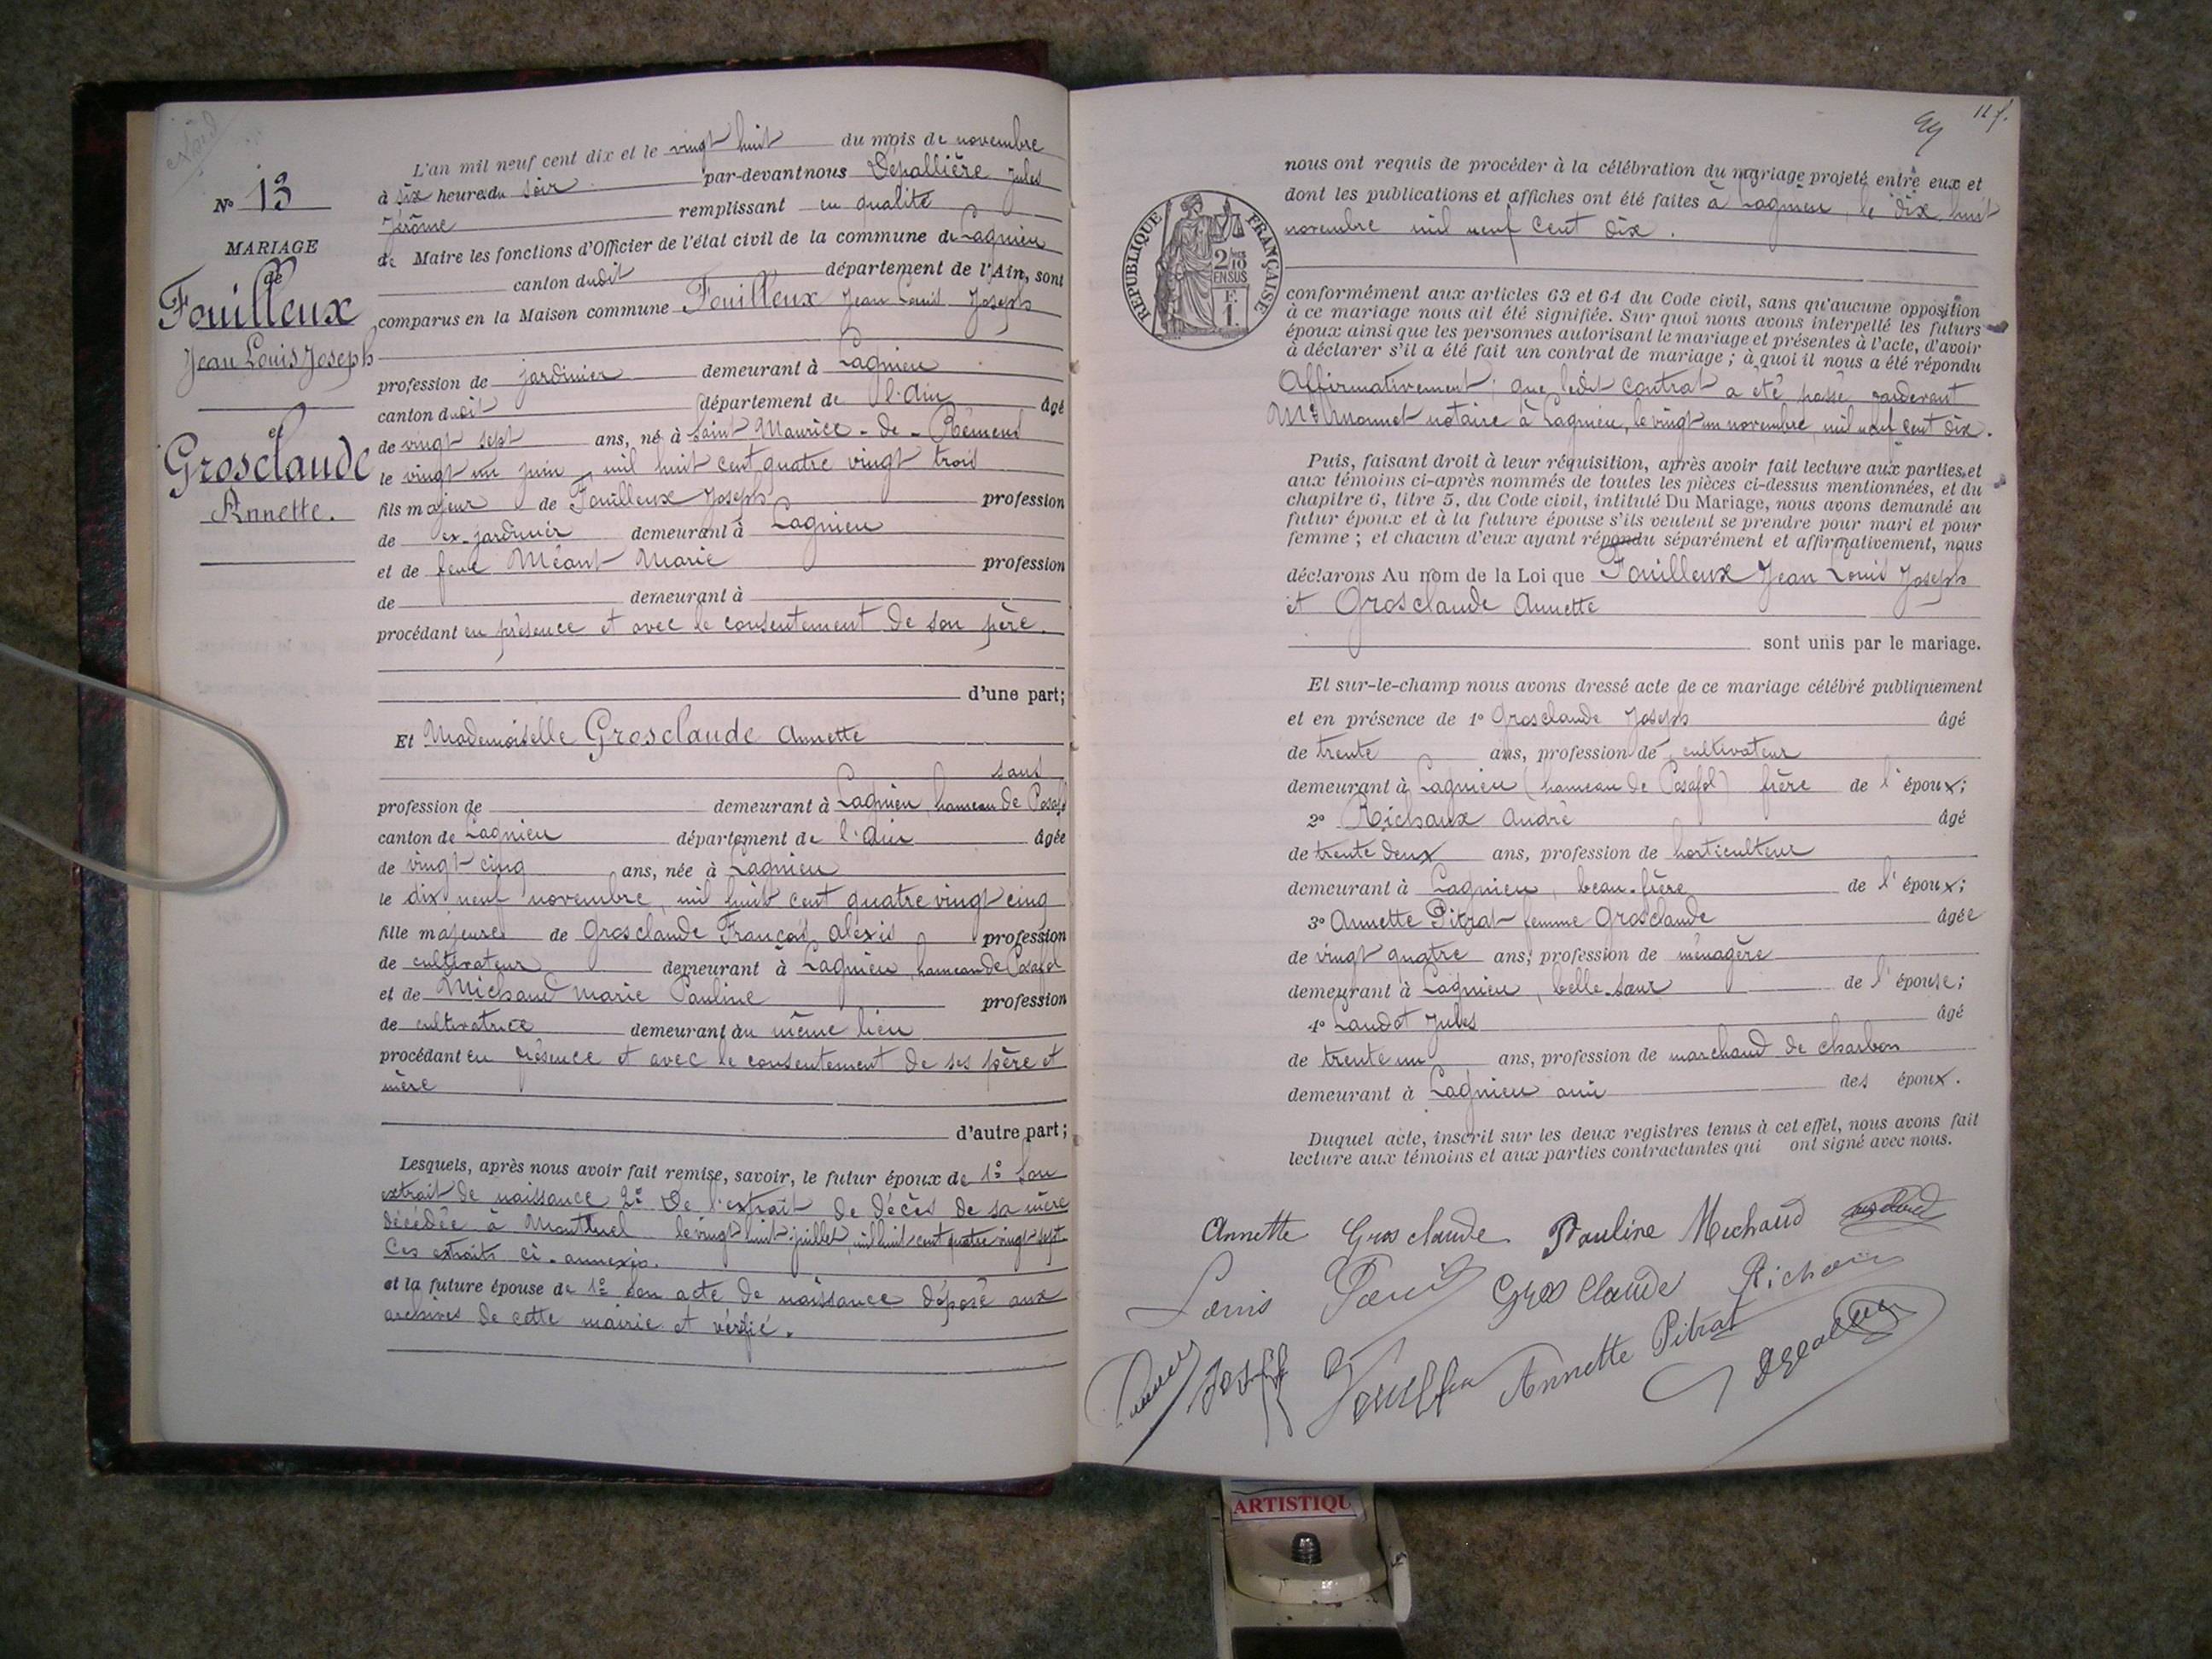 N° 13
MARIAGE
de
Fouilleux
Jean Louis Joseph
et
Grosclaude
Annette.
L'an mil neuf cent dix et le vingt huit du mois de novembre
à six heures du soir par-devant nous Dépallière Jules
Jérôme remplissant en qualité
de Maire les fonctions d'Officier de l'état civil de la commune de Lagnieu
canton dudit département de l'Ain, sont
comparus en la Maison commune Fouilleux Jean Louis Joseph
profession de jardinier demeurant à Lagnieu
canton dudit département de l'Ain âgé
de vingt sept ans, né à Saint Maurice-de-Rémens
le vingt un juin mil huit cent quatre vingt trois
fils majeur de Fouilleux Joseph profession
de ex-jardinier demeurant à Lagnieu
et de feue Méant Marie profession
de demeurant à
procédant en présence et avec le consentement de son père.
d'une part;
Et Mademoiselle Grosclaude Annette
sans
profession de demeurant à Lagnieu, hameau de Posafol
canton de Lagnieu département de l'Ain âgée
de vingt-cinq ans, née à Lagnieu
le dix neuf novembre, mil huit cent quatre vingt cinq
fille majeure de Grosclaude François Alexis profession
de cultivateur demeurant à Lagnieu, hameau de Posafol
et de Michaud Marie Pauline profession
de cultivatrice demeurant au même lieu
procédant en présence et avec le consentement de ses père et
mère
d'autre part;
Lesquels, après nous avoir fait remise, savoir, le futur époux de 1° son
extrait de naissance 2° De l'extrait de décès de sa mère
décédée à Montluel le vingt huit juillet, mil huit cent quatre vingt sept
Ces extraits ci-annexés.
et la future épouse de 1° son acte de naissance déposé aux
archives de cette mairie et vérifié.
11 f.
REPUBLIQUE FRANÇAISE
2/10
EN SUS
F.
1.
nous ont requis de procéder à la célébration du mariage projeté entre eux et
dont les publications et affiches ont été faites à Lagnieu, le dix huit
novembre mil neuf cent dix.
conformément aux articles 63 et 64 du Code civil, sans qu'aucune opposition
à ce mariage nous ait été signifiée. Sur quoi nous avons interpellé les futurs
époux ainsi que les personnes autorisant le mariage et présentes à l'acte, d'avoir
à déclarer s'il a été fait un contrat de mariage; à quoi il nous a été répondu
Affirmativement; que ledit contrat a été passé pardevant
Me Monnet notaire à Lagnieu, le vingt un novembre, mil neuf cent dix.
Puis, faisant droit à leur réquisition, après avoir fait lecture aux parties et
aux témoins ci-après nommés de toutes les pièces ci-dessus mentionnées, et du
chapitre 6, titre 5, du Code civil, intitulé Du Mariage, nous avons demandé au
futur époux et à la future épouse s'ils veulent se prendre pour mari et pour
femme; et chacun d'eux ayant répondu séparément et affirmativement, nous
déclarons Au nom de la Loi que Fouilleux Jean Louis Joseph
et Grosclaude Annette
sont unis par le mariage.
Et sur-le-champ nous avons dressé acte de ce mariage célébré publiquement
et en présence de 1° Grosclaude Joseph âgé
de trente ans, profession de cultivateur
demeurant à Lagnieu (hameau de Posafol) frère de l'époux;
2° Richaux André âgé
de trente deux ans, profession de horticulteur
demeurant à Lagnieu, beau-frère de l'époux;
3° Annette Pitrat femme Grosclaude âgée
de vingt quatre ans, profession de ménagère
demeurant à Lagnieu, belle-sœur de l'épouse;
4° Landot Jules âgé
de trente un ans, profession de marchand de charbon
demeurant à Lagnieu ami des époux.
Duquel acte, inscrit sur les deux registres tenus à cet effet, nous avons fait
lecture aux témoins et aux parties contractantes qui ont signé avec nous.
Annette Grosclaude Pauline Michaud
Louis Grosclaude Richaux
Annette Pitrat
ARTISTIQU